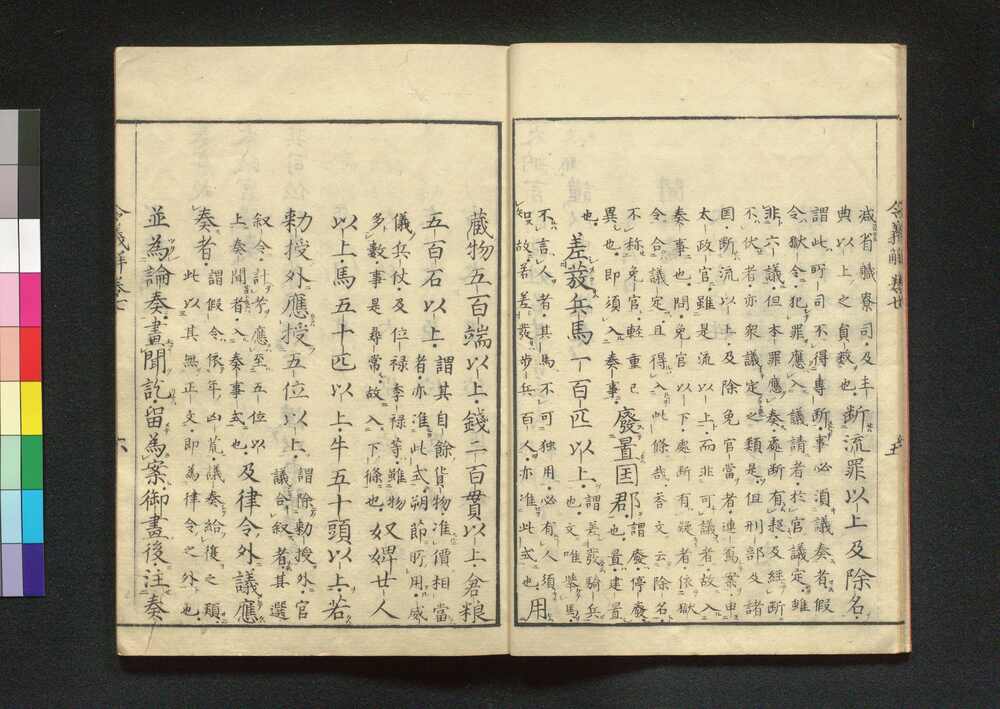 令義解 卷七 五
減省職寮司及主
典以上之員数也
断流罪以上及除名
謂此所司不得專断事必須議奏者假
令獄令犯罪應入議請者於官議定雖
非六議但本罪應奏處断有疑及經断
不伏者亦衆議定之類是但刑部及諸
国断流以上及除免官當者連寫案申
太政官雖是流以上而非可議者故入
奏事也問免官以下處断有疑者依獄
令合議定且得入此條哉荅文云除名
不称免官軽重已
異也即須入奏事
廢置国郡
謂廢停廢
也置建置
也
差發兵馬一百匹以上
謂差發騎兵
也文唯挙馬
不言人者其馬不可独用必有人須
知故若差發歩兵百人亦准此式也
用
蔵物五百端以上銭二百貫以上倉粮
五百石以上
謂其自餘貨物准價相當
者亦准此式朔節所用威
儀兵仗及位禄季禄等雖物又
多数事是尋常故入下條也
奴婢廿人
以上馬五十匹以上牛五十頭以上若
勅授外應授五位以上
謂除勅授外官
議合叙者其選
叙令計考應至五位以
上奏聞者入奏事式也
及律令外議應
奏者
謂假令依年凶荒議奏給復之類
此以其無正文即為律令之外也
並為論奏畫聞訖留為案御畫後注奏
令義解卷七 六